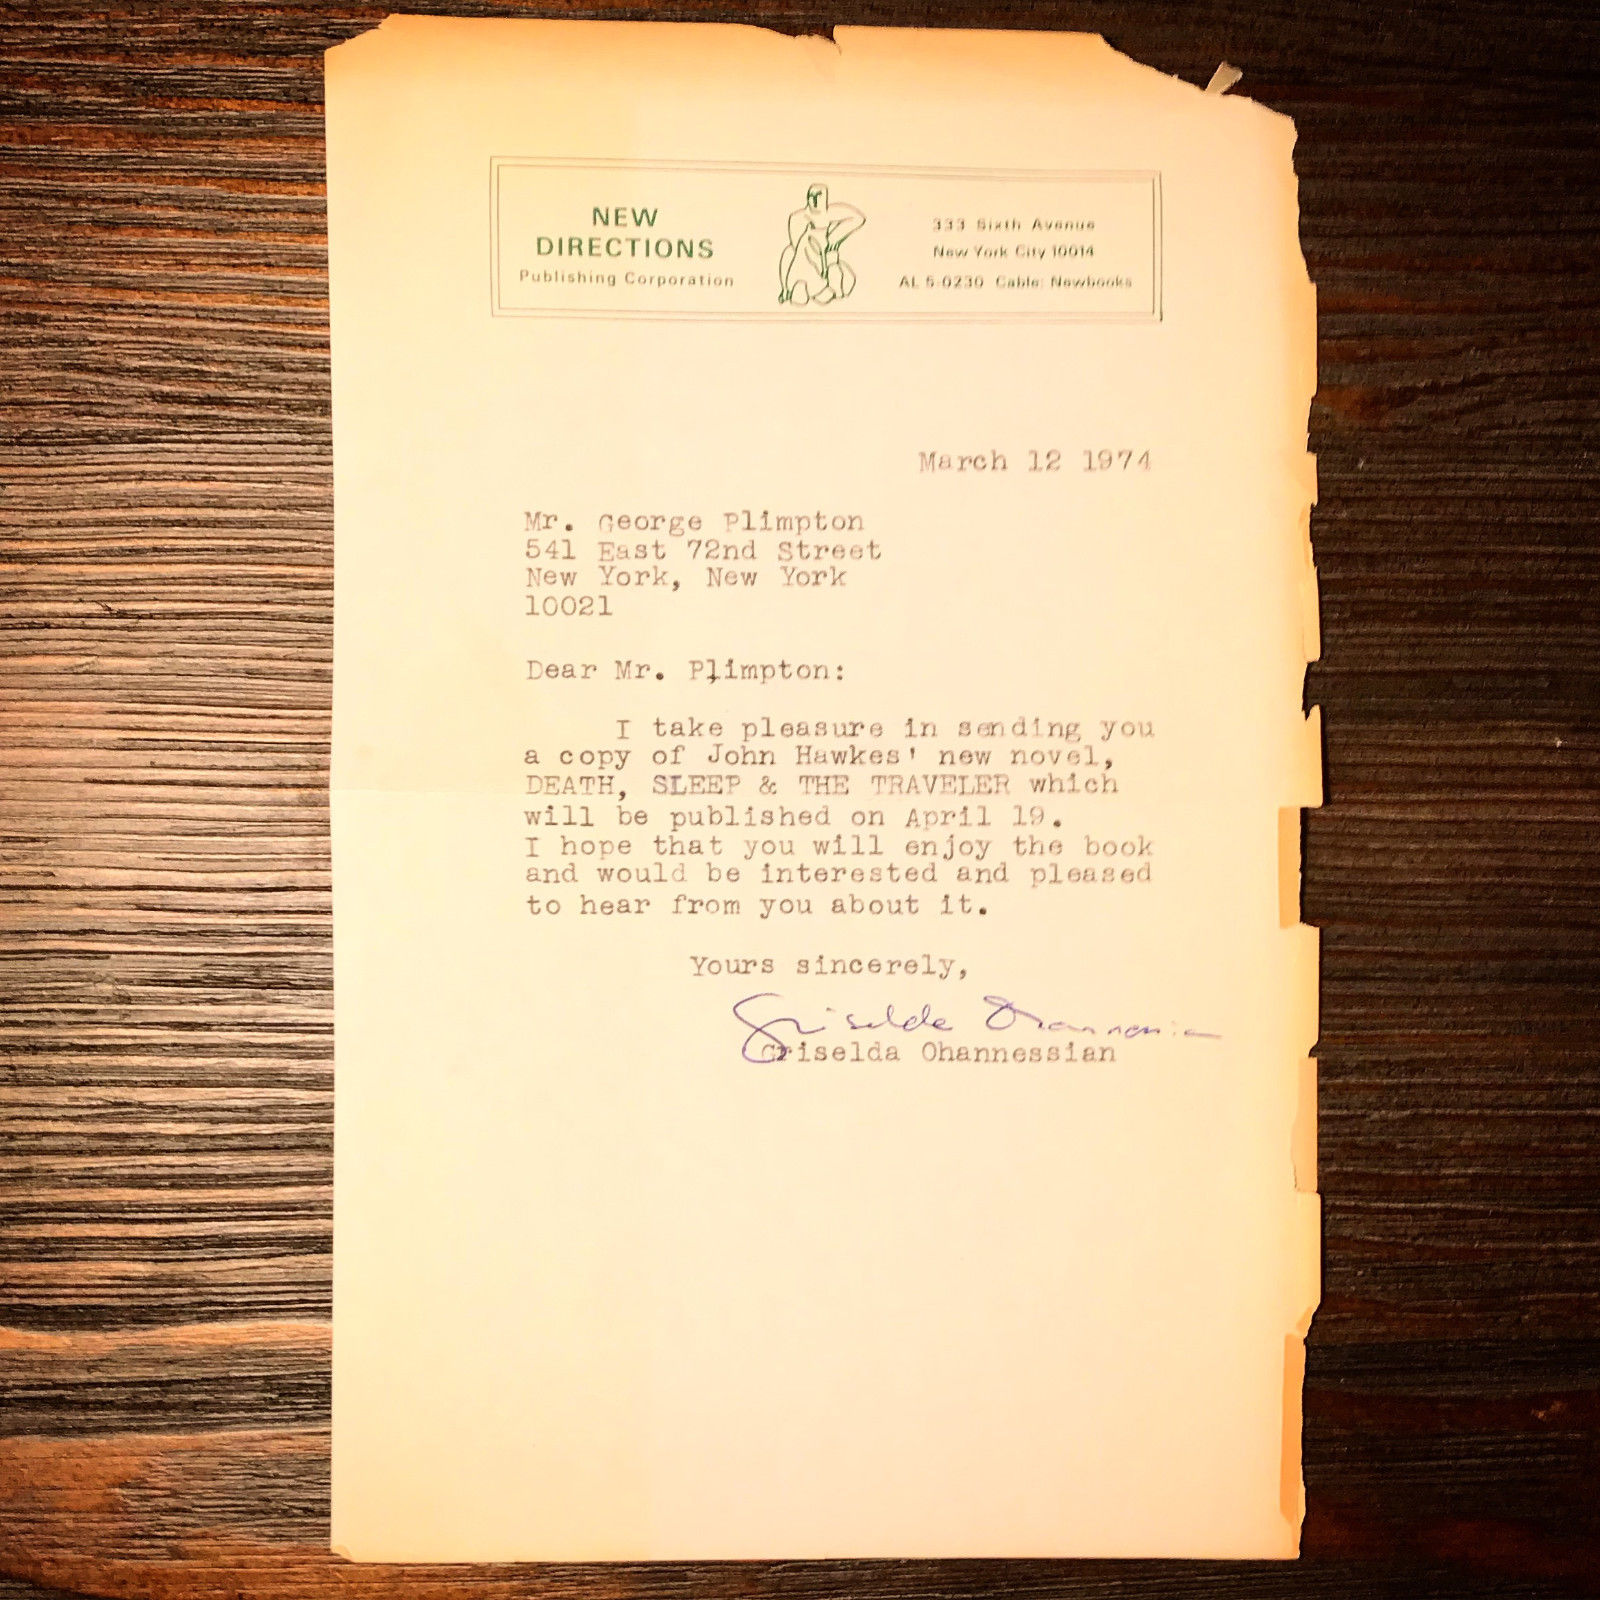 NEW
DIRECTIONS
Publishing Corporation
333 Sixth Avenue
New York City 10014
AL 5-0230 Cable: Newbooks
March 12 1974
Mr. George Plimpton
541 East 72nd Street
New York, New York
10021
Dear Mr. Plimpton:
I take pleasure in sending you
a copy of John Hawkes' new novel,
DEATH, SLEEP & THE TRAVELER which
will be published on April 19.
I hope that you will enjoy the book
and would be interested and pleased
to hear from you about it.
Yours sincerely,
Griselda Ohannessian
Griselda Ohannessian